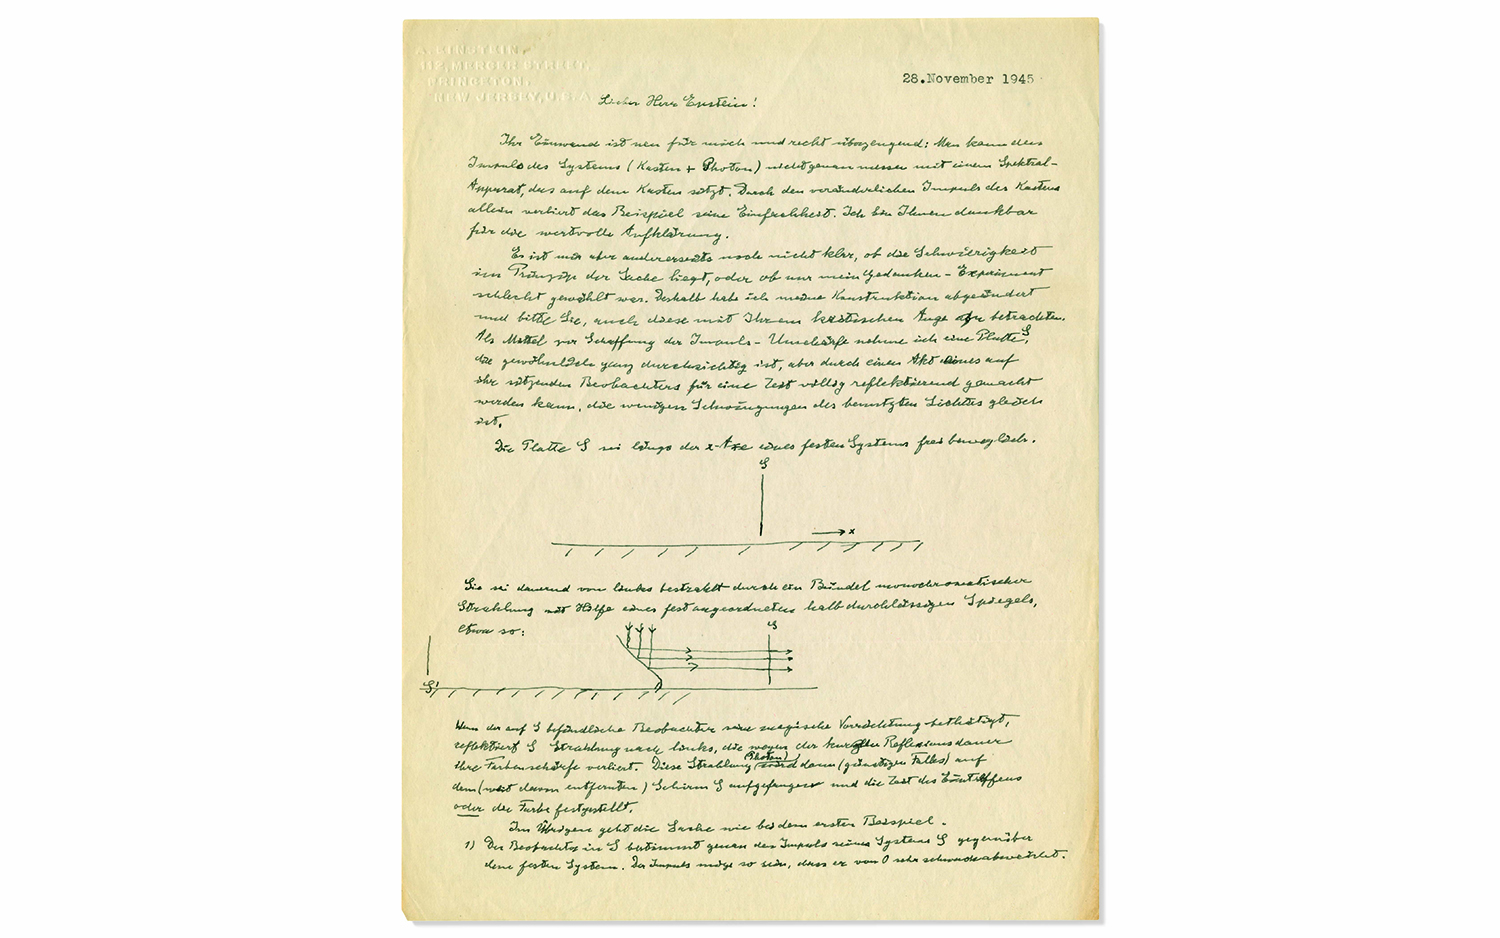 A. EINSTEIN.
112, MERCER STREET.
PRINCETON.
NEW JERSEY, U.S.A.
28.November 1945
Lieber Herr Epstein!
Ihr Einwand ist neu für mich und recht überzeugend: Man kann den
Impuls des Systems (Kasten + Photon) nicht genau messen mit einem Spektral-
Apparat, das auf dem Kasten sitzt. Durch den veränderlichen Impuls des Kastens
allein verliert das Beispiel seine Einfachheit. Ich bin Ihnen dankbar
für die wertvolle Aufklärung.
Es ist mir aber andererseits noch nicht klar, ob die Schwierigkeit
im Prinzip der Sache liegt, oder ob nur mein Gedanken-Experiment
schlecht gewählt war. Deshalb habe ich meine Konstruktion abgeändert
und bitte Sie, auch diese mit Ihrem kritischen Auge zu betrachten.
Als Mittel zur Schaffung der Impuls-Unschärfe nehme ich eine Platte S,
die gewöhnlich ganz durchsichtig ist, aber durch einen Akt eines auf
ihr sitzenden Beobachters für eine Zeit völlig reflektierend gemacht
werden kann, die wenigen Schwingungen des benutzten Lichtes gleich
ist.
Die Platte S sei längs der x-Axe eines festen Systems frei beweglich.
S
x
Sie sei dauernd von links bestrahlt durch ein Bündel monochromatischer
Strahlung mit Hilfe eines fest angeordneten halbdurchlässigen Spiegels,
etwa so:
S
S'
Wenn der auf S befindliche Beobachter seine magische Vorrichtung bethätigt,
reflektiert S Strahlung nach links, die wegen der kurzen Reflexionsdauer
ihre Farbenschärfe verliert. Diese Strahlung (Photon) wird dann (günstigen Falles) auf
dem (weit davon entfernten) Schirm S aufgefangen und die Zeit des Eintreffens
oder die Farbe festgestellt.
Im Übrigen geht die Sache wie bei dem ersten Beispiel.
1) Der Beobachter in S bestimmt genau den Impuls seines Systems S gegenüber
dem festen System. Der Impuls möge so sein, dass er von 0 sehr schwach abweicht.